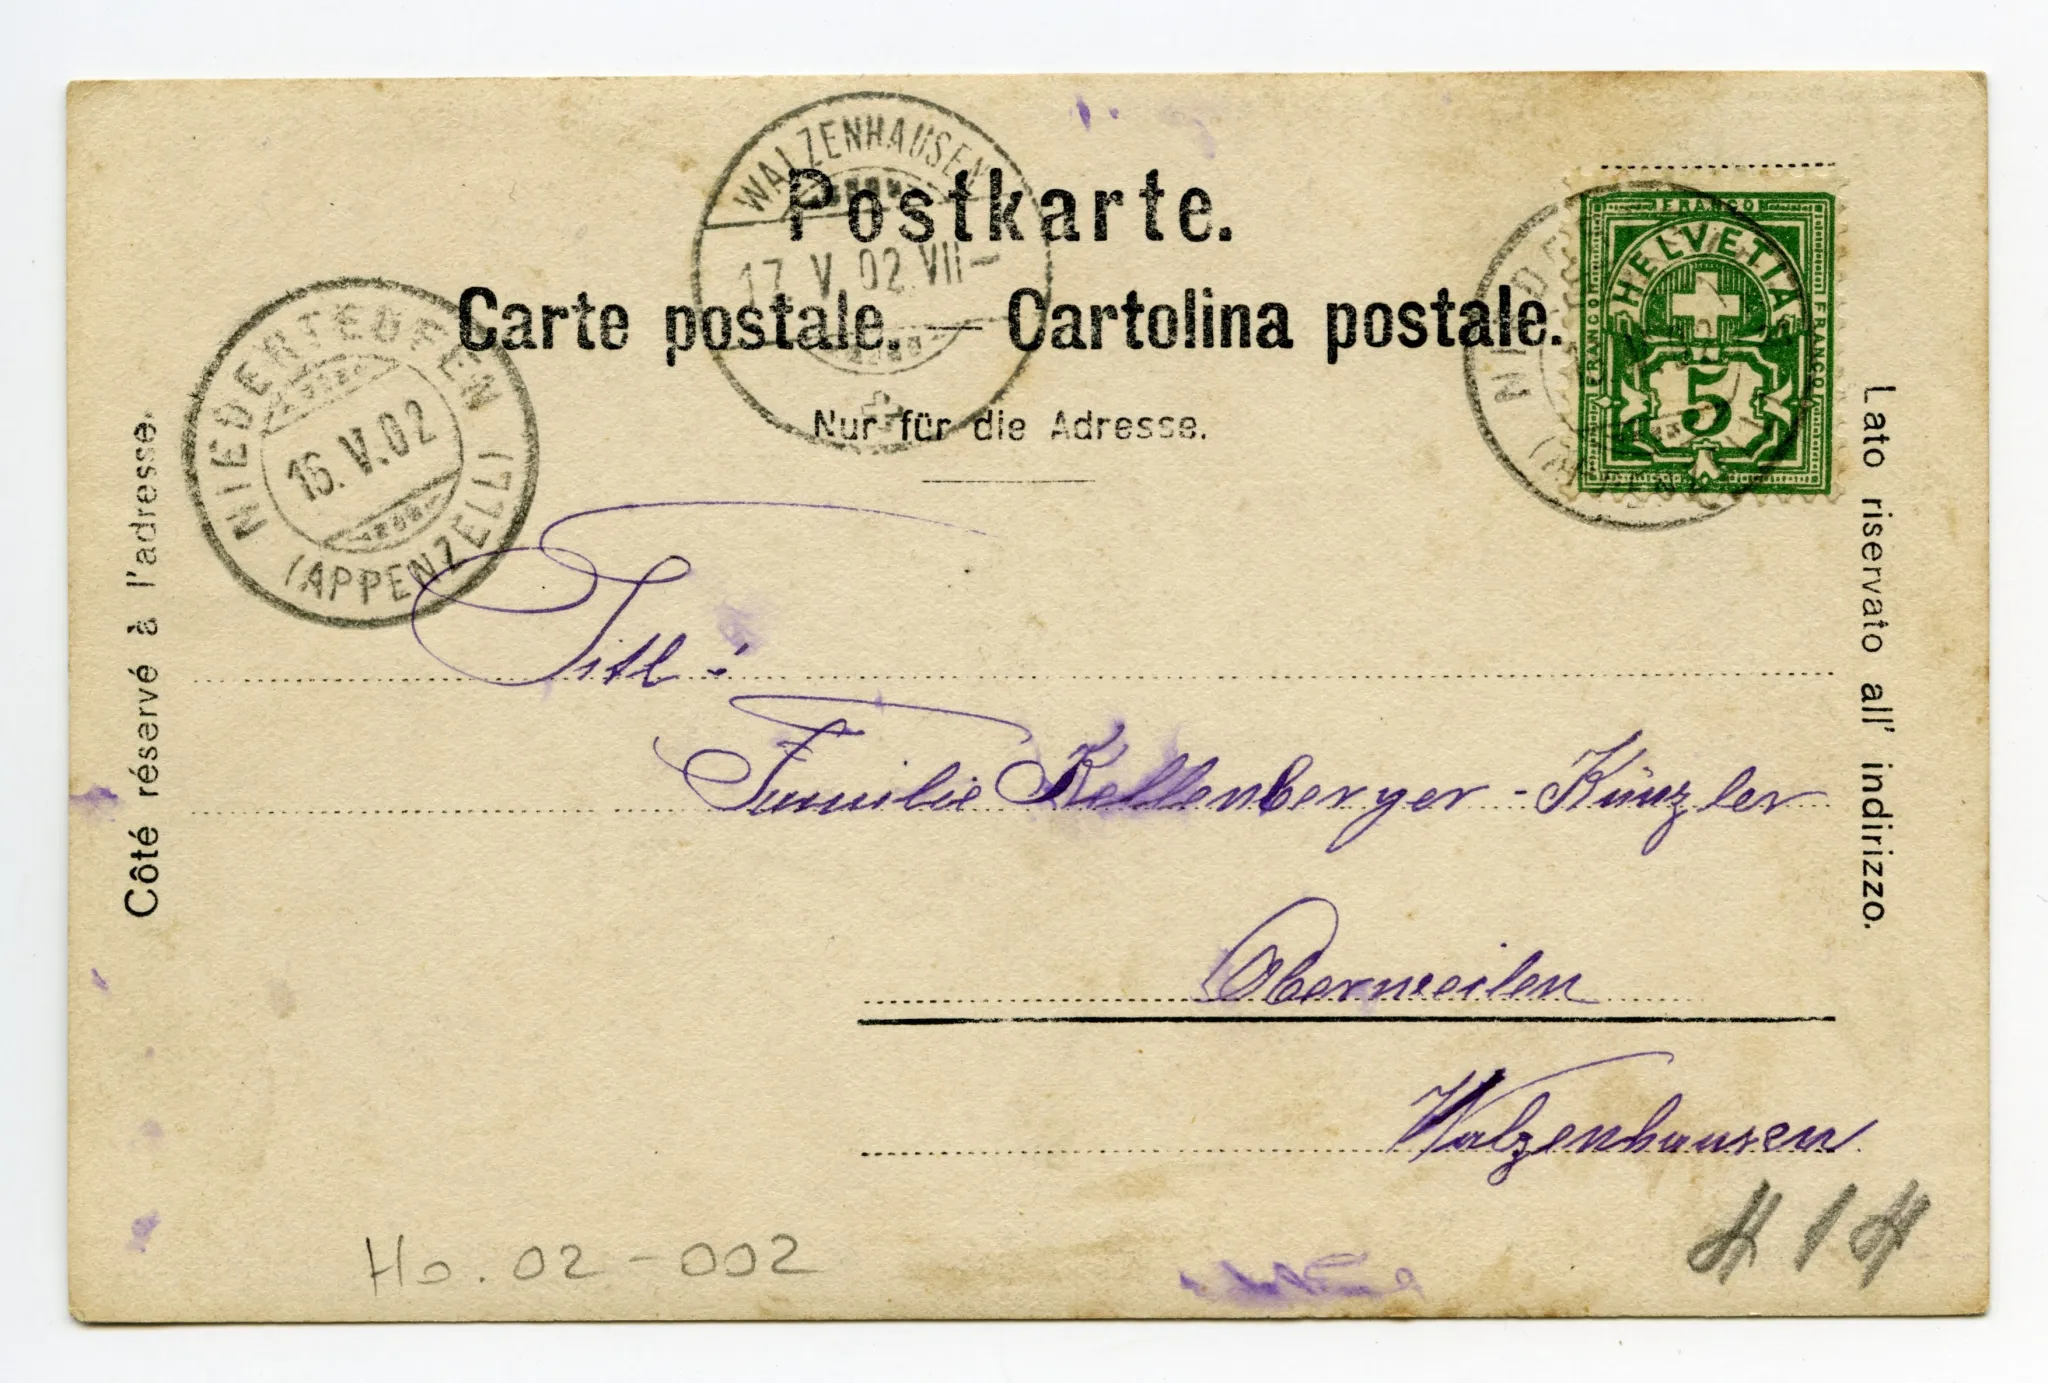 WALZENHAUSEN
17. V. 02. VII –
Postkarte.
Carte postale. — Cartolina postale.
Nur für die Adresse.
NIEDERTEUFEN
16. V. 02
(APPENZELL)
FRANCO
HELVETIA
FRANCO
FRANCO
5
Côté réservé à l'adresse.
Lato riservato all' indirizzo.
Titl:
Familie Kellenberger-Künzler
Oberweilen
Walzenhausen
Ho. 02-002